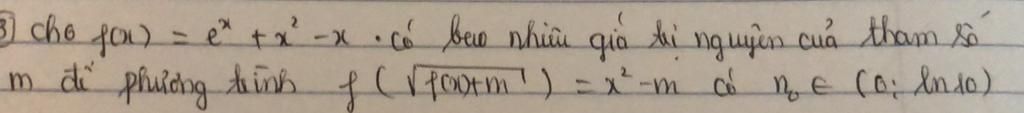 3) cho f(x) = e^x + x² - x . có bao nhiêu giá trị nguyên của tham số
m để phương trình f(√(f(x)+m)) = x² - m có n₀ ∈ (0; ln10)